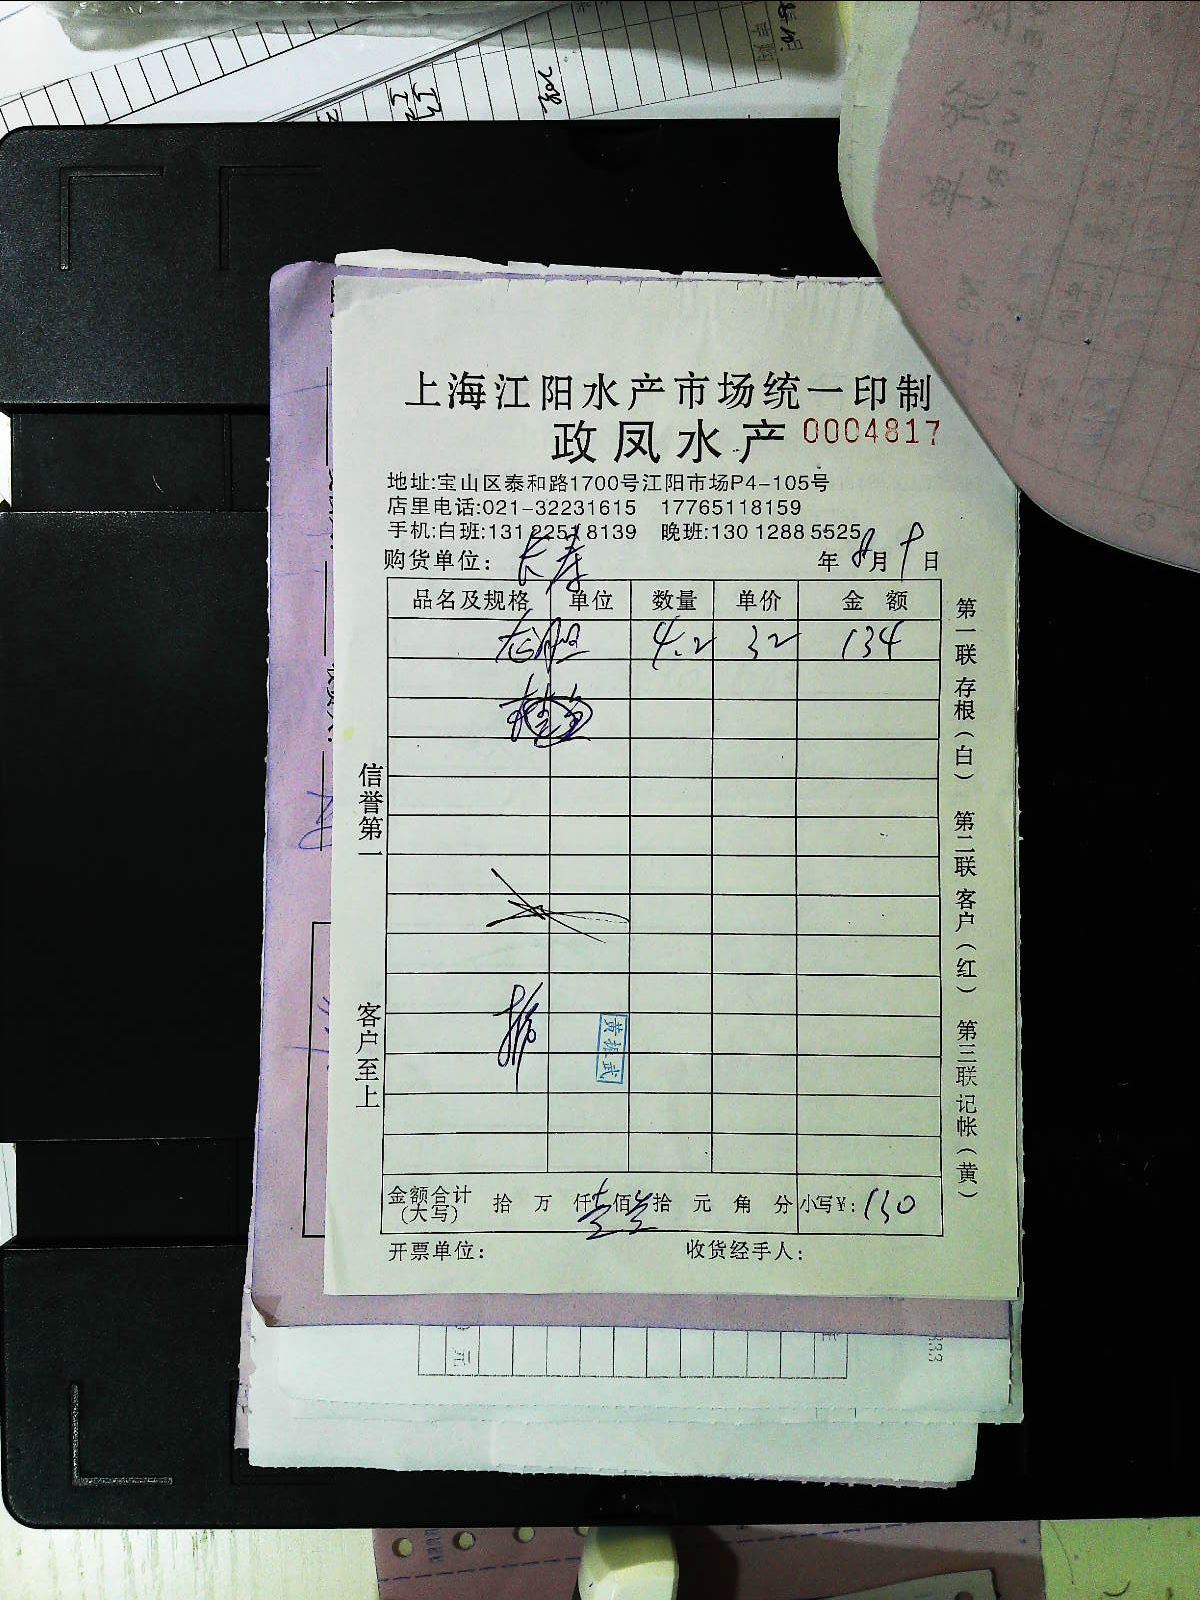 上海江阳水产市场统一印制
政凤水产 0004817
地址:宝山区泰和路1700号江阳市场P4-105号
店里电话:021-32231615 17765118159
手机:白班:131 2251 8139 晚班:130 1288 5525
购货单位: 长寿 年 8月9日
品名及规格 单位 数量 单价 金额
龙胆 4.2 32 134
金额合计(大写) 拾 万 仟 壹佰 叁拾 元 角 分 小写¥: 130
开票单位: 收货经手人:
信誉第一
客户至上
第一联 存根(白) 第二联 客户(红) 第三联 记帐(黄)
黄振武